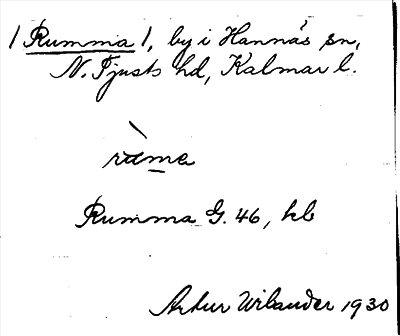 / Rumma /, by i Hannäs sn,
N. Tjusts hd, Kalmar l.
ru̇̀ma
Rumma G. 46, kb
Artur Wilander 1930